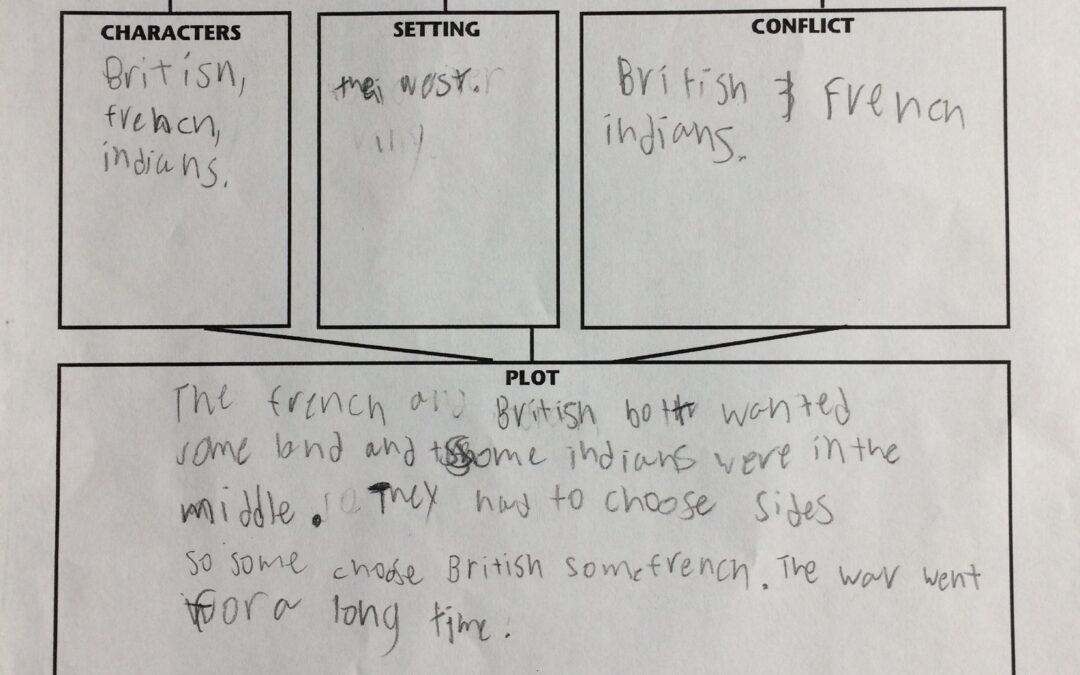 CHARACTERS
British,
french,
indians.
SETTING
the west.
CONFLICT
British & French
indians.
PLOT
The french and British both wanted
some land and some indians were in the
middle. They had to choose sides
so some choose British some french. The war went
for a long time.